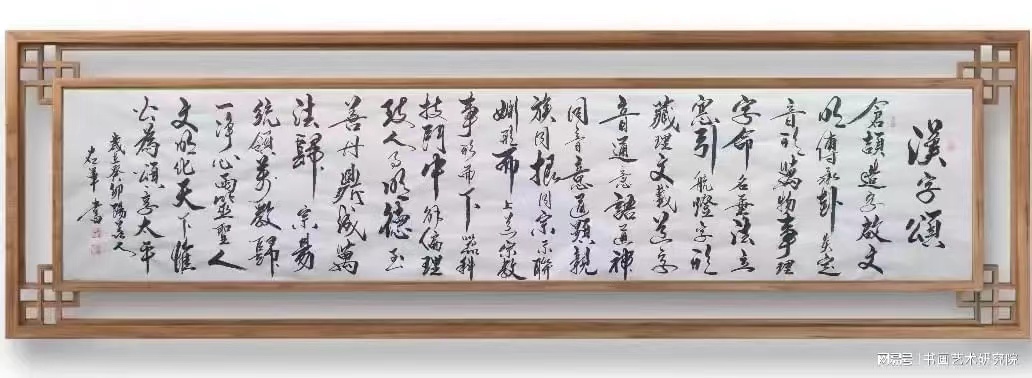 漢字頌
倉頡造字啟文
明傳承卦爻定
音形萬物事理
字命名垂法立
憲引航燈字形
藏理文載道字
音通意語通神
同音意通顯親
族同根同宗示聯
姻形而上道宗教
事形而下器科
技中倫理
致人為明德至
善興成萬
法歸宗易
統領萬教歸
一淨心靈聖人
文明化天下惟
公為頌享太平
歲在癸卯陽春人
書
网易号 | 书画艺术研究院